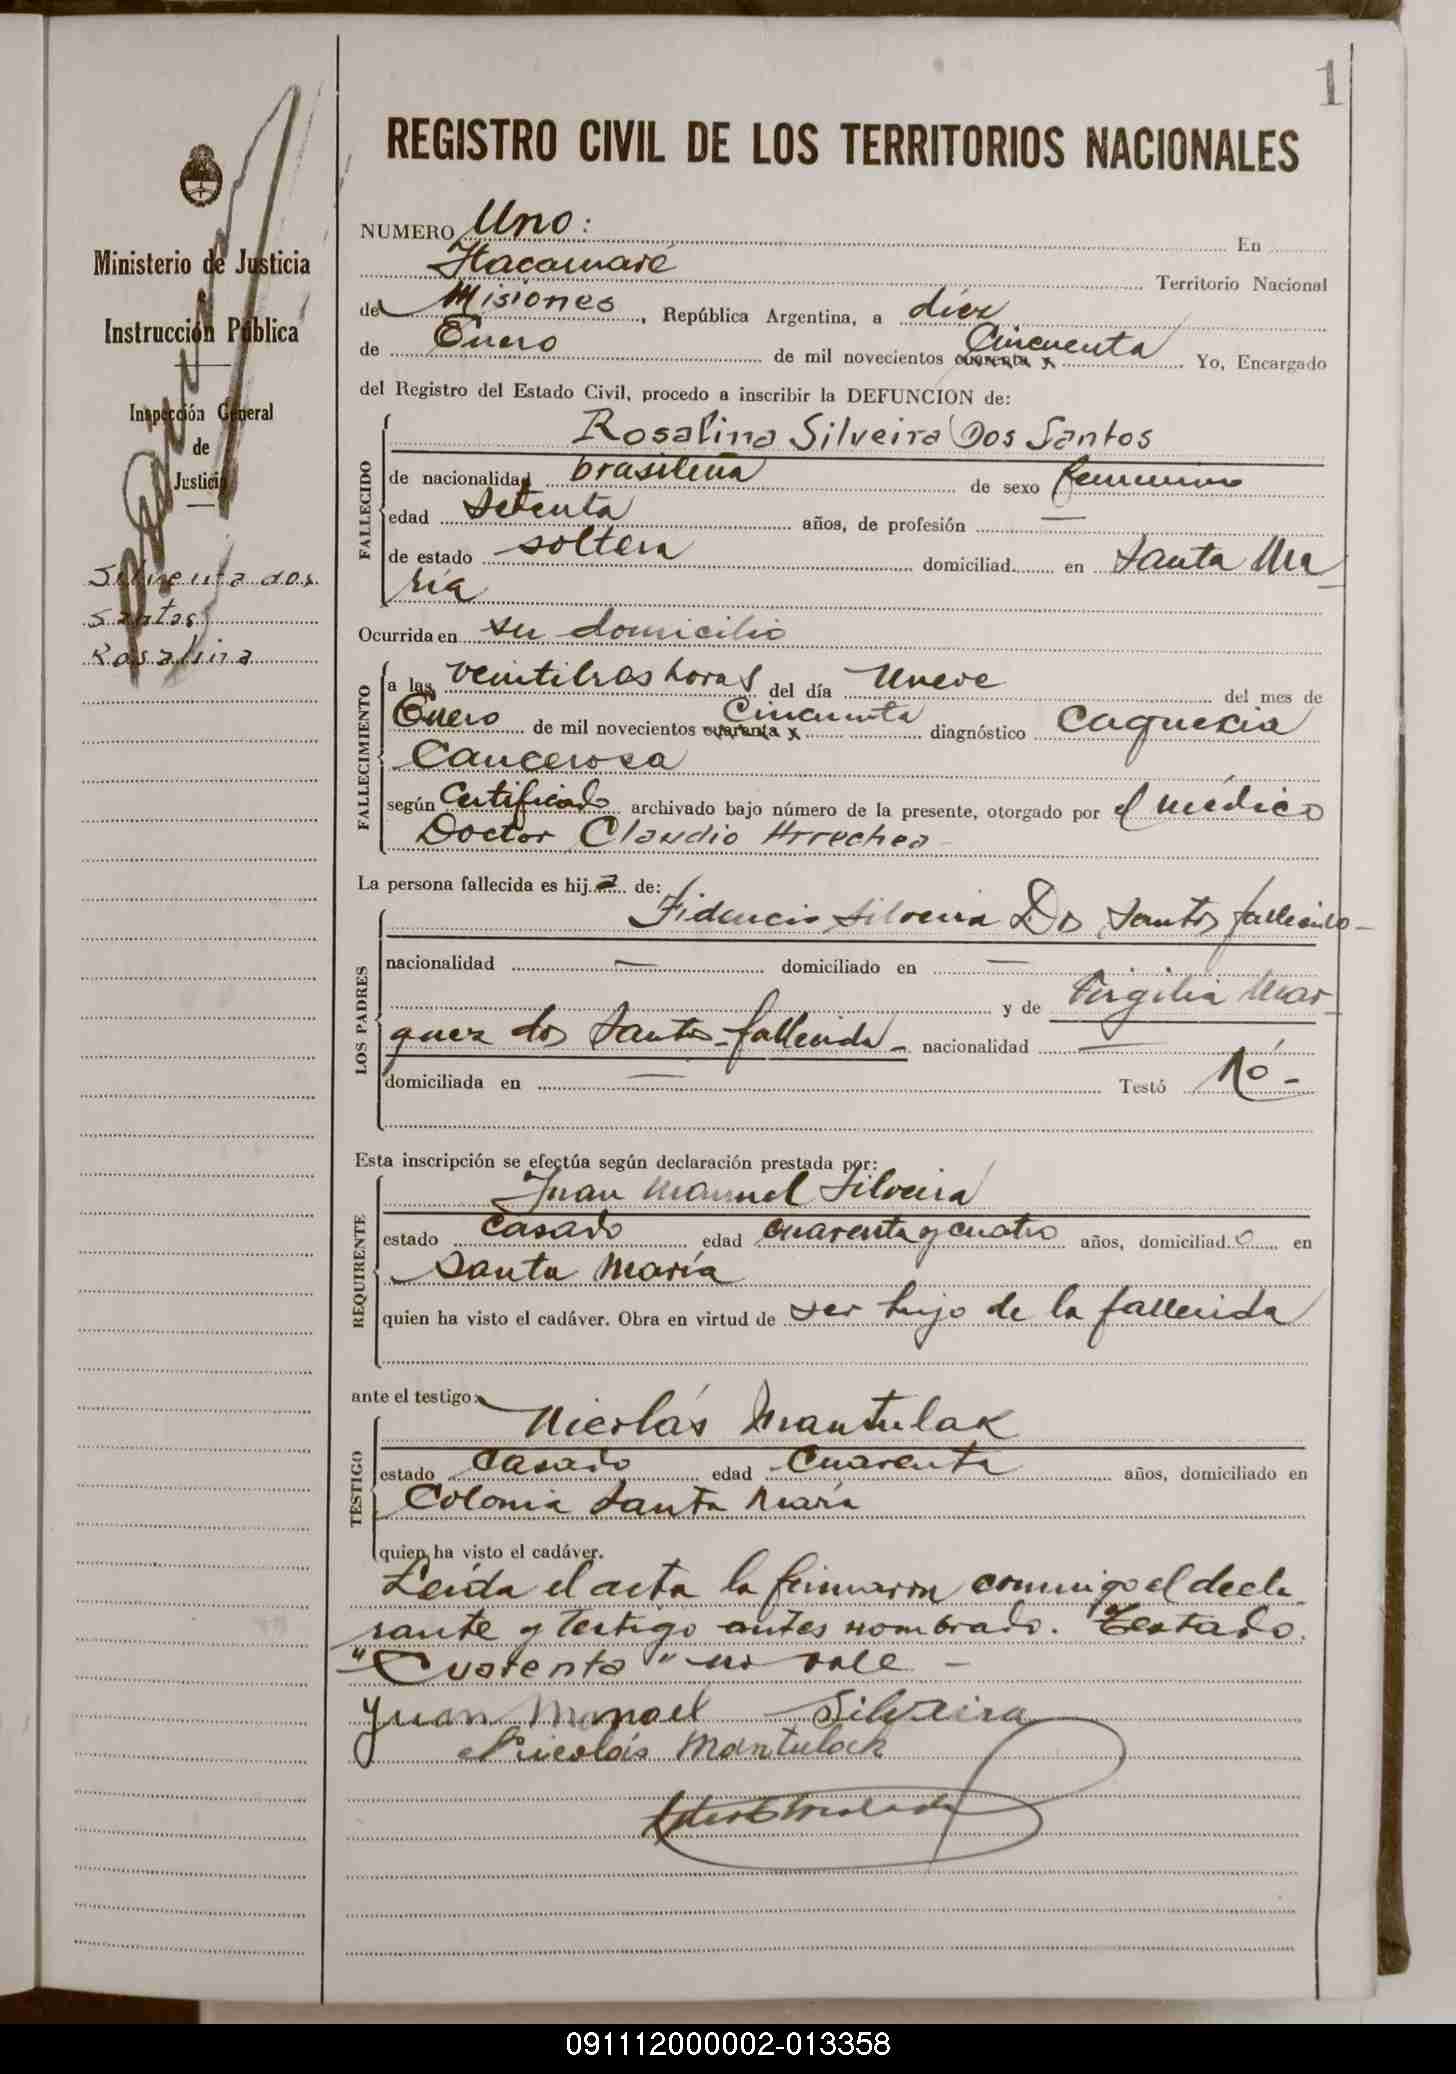 1
REGISTRO CIVIL DE LOS TERRITORIOS NACIONALES
Ministerio de Justicia
Instrucción Pública
Inspección General
de
Justicia
Silveira dos
Santos
Rosalina
NUMERO Uno: En
Itacaruaré Territorio Nacional
de Misiones, República Argentina, a diez
de Enero de mil novecientos cuarenta y Cincuenta Yo, Encargado
del Registro del Estado Civil, procedo a inscribir la DEFUNCION de:
FALLECIDO
Rosalina Silveira Dos Santos
de nacionalidad brasileña de sexo femenino
edad Setenta años, de profesión —
de estado soltera domiciliad en Santa Ma
ría
Ocurrida en su domicilio
FALLECIMIENTO
a las veintitres horas del día nueve del mes de
Enero de mil novecientos cuarenta y Cincuenta diagnóstico Caquexia
Cancerosa
según Certificado archivado bajo número de la presente, otorgado por el médico
Doctor Claudio Arrechea
La persona fallecida es hija de:
LOS PADRES
Fidencio Silveira Dos Santos fallecido -
nacionalidad — domiciliado en —
y de Virgilia Mar-
quez dos Santos - fallecida - nacionalidad —
domiciliada en — Testó Nó -
Esta inscripción se efectúa según declaración prestada por:
REQUIRENTE
Juan Manuel Silveira
estado Casado edad cuarenta y cuatro años, domiciliado en
Santa María
quien ha visto el cadáver. Obra en virtud de ser hijo de la fallecida
ante el testigo:
TESTIGO
Nicolás Mantulak
estado Casado edad Cuarenta años, domiciliado en
Colonia Santa María
quien ha visto el cadáver.
Leída el acta la firmaron conmigo el decla
rante y testigo antes nombrado. Testado.
"Cuarenta" no vale -
Juan Manoel Silveira
Nicolás Mantulak
091112000002-013358